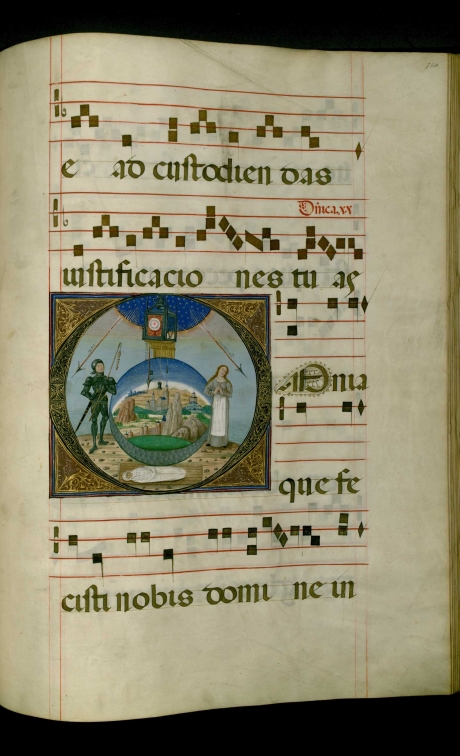 e ad custodien das
Dnica.xx
iustificacio nes tu as
Omnia
que fe
cisti nobis domi ne in